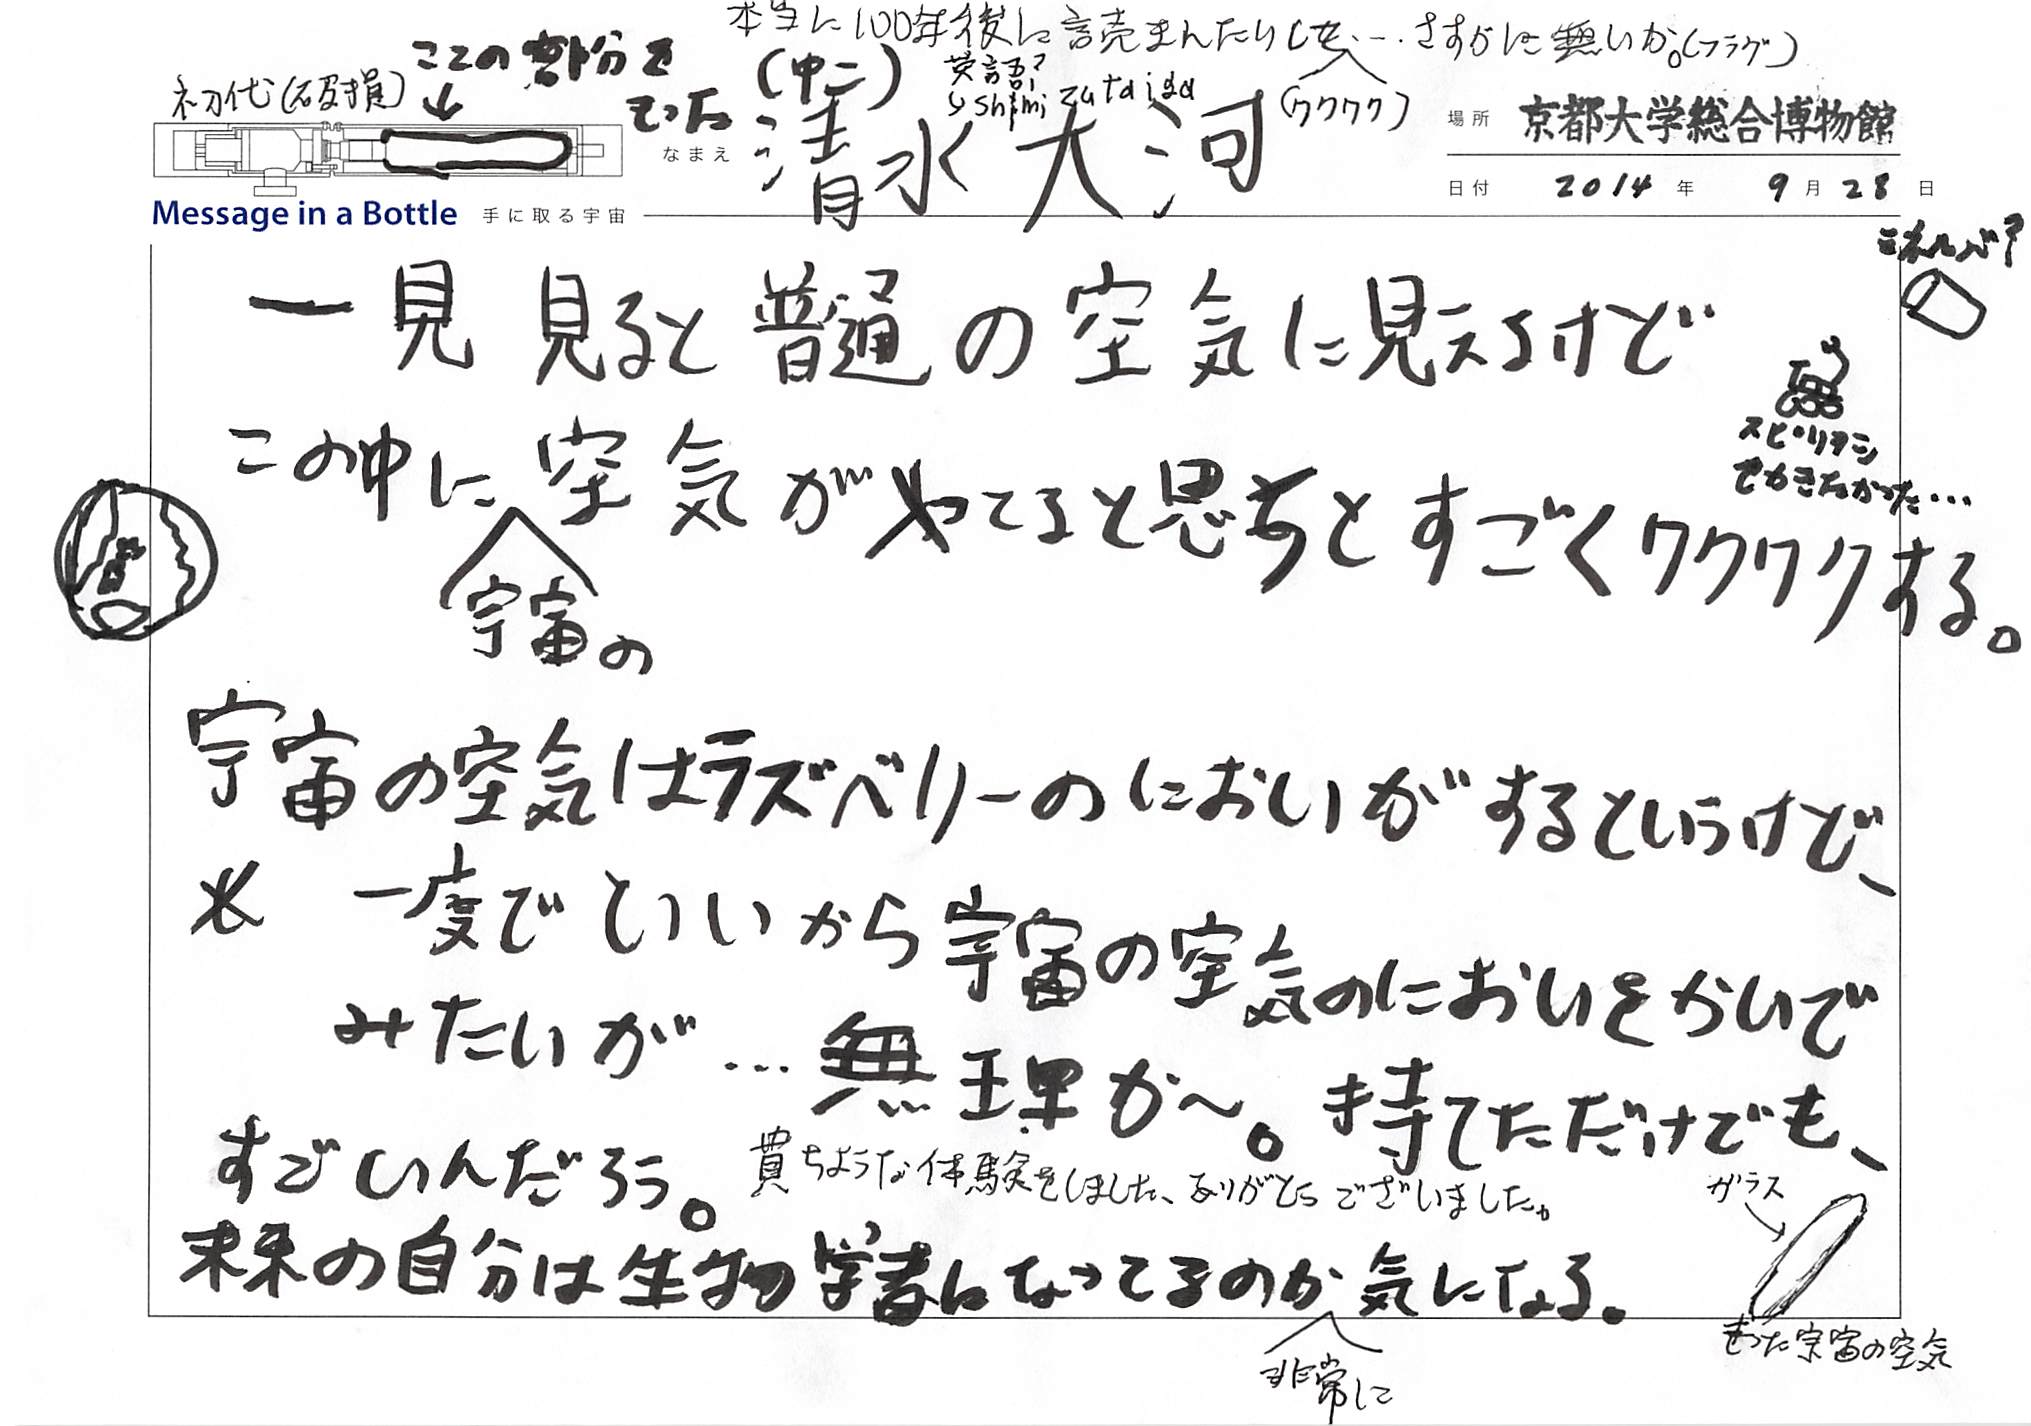 本当に100年後に読まれたりして…さすがに無いか。(フラグ)
(ワクワク)
初代(破損)
ここの部分を
もった
(中二)
英語?
shimizu taiga
なまえ 清水大河
場所 京都大学総合博物館
日付 2014年 9月28日
Message in a Bottle 手に取る宇宙
ミネルバ?
一見見ると普通の空気に見えるけど
スピリテン
もかきたかった…
この中に空気が入ってると思うとすごくワクワクする。
宇宙の
宇宙の空気はラズベリーのにおいがするというけど、
一度でいいから宇宙の空気のにおいをかいで
みたいが…無理か〜。持てただけでも、
すごいんだろう。
貴ちょうな体験をしました、ありがとうございました。
ガラス
未来の自分は生物学者になってるのか気になる。
非常に
もった宇宙の空気